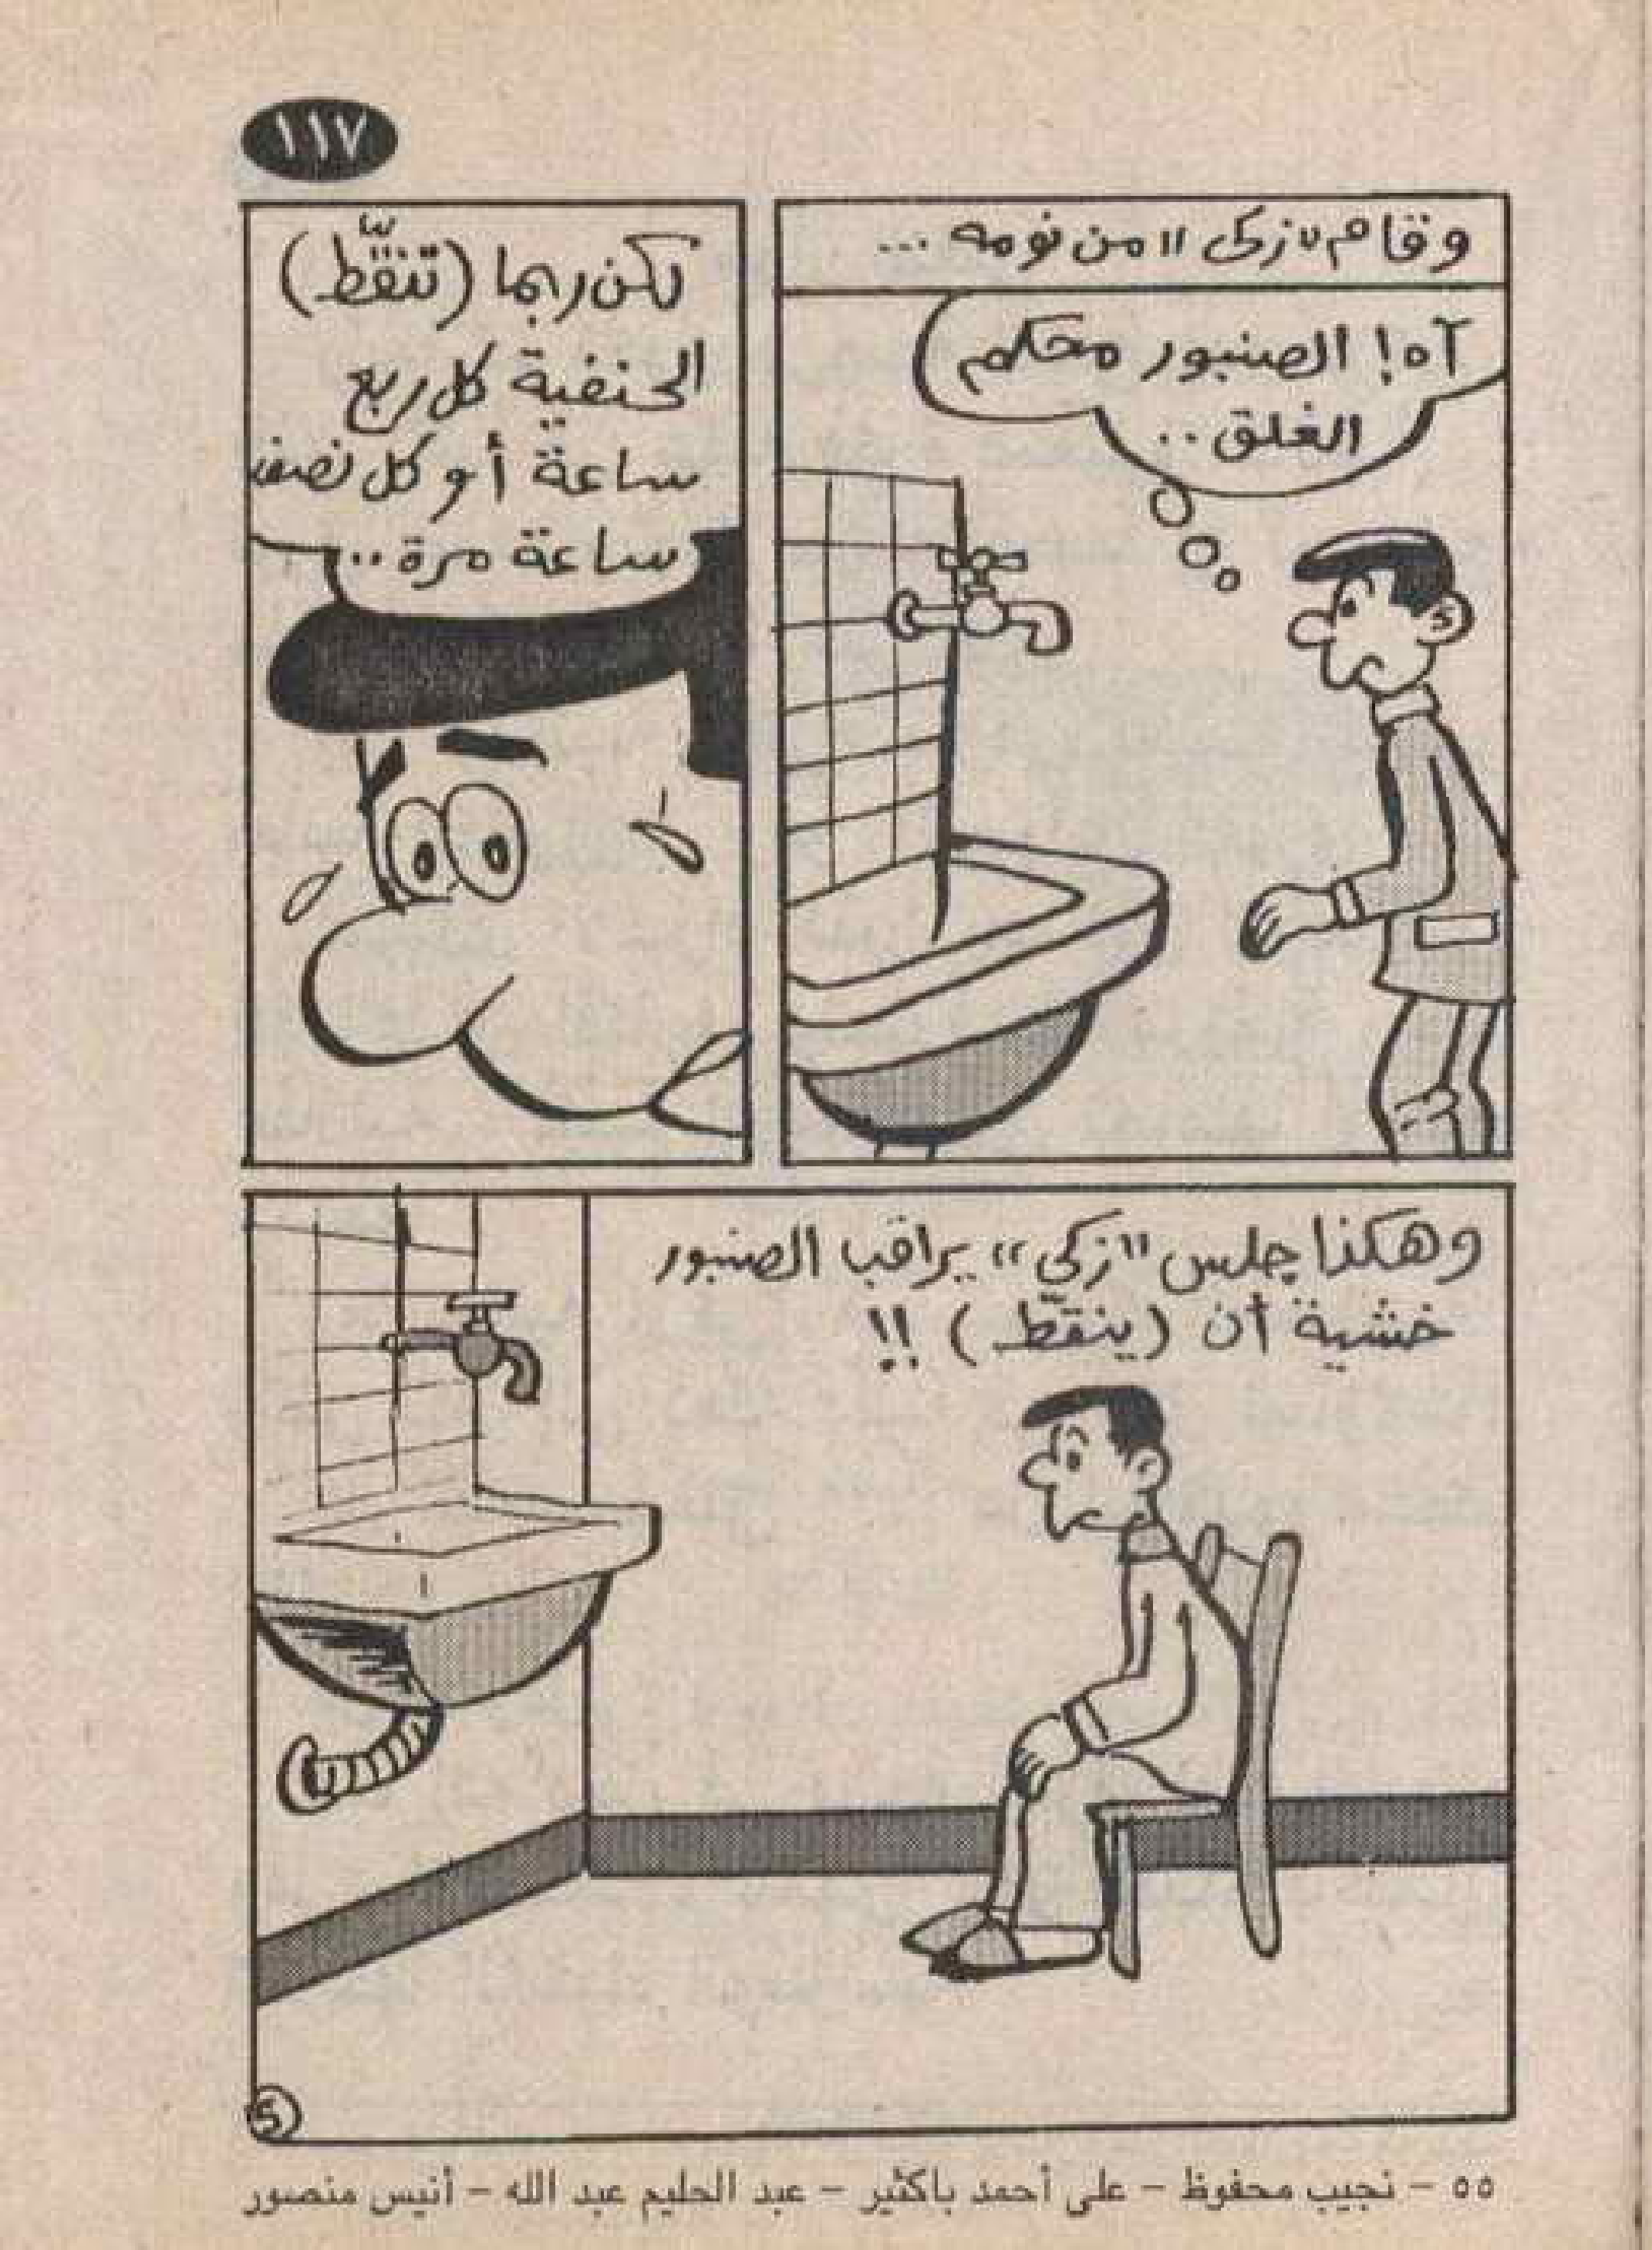 ١١٧
وقام "زكى" من نومه ...
آه! الصنبور محكم
الغلق ..
لكن ربما (تنقّط)
الحنفية كل ربع
ساعة أو كل نصف
ساعة مرة ..
وهكذا جلس "زكي" يراقب الصنبور
خشية أن (ينقّط) !!
5
٥٥ - نجيب محفوظ - على أحمد باكثير - عبد الحليم عبد الله - أنيس منصور